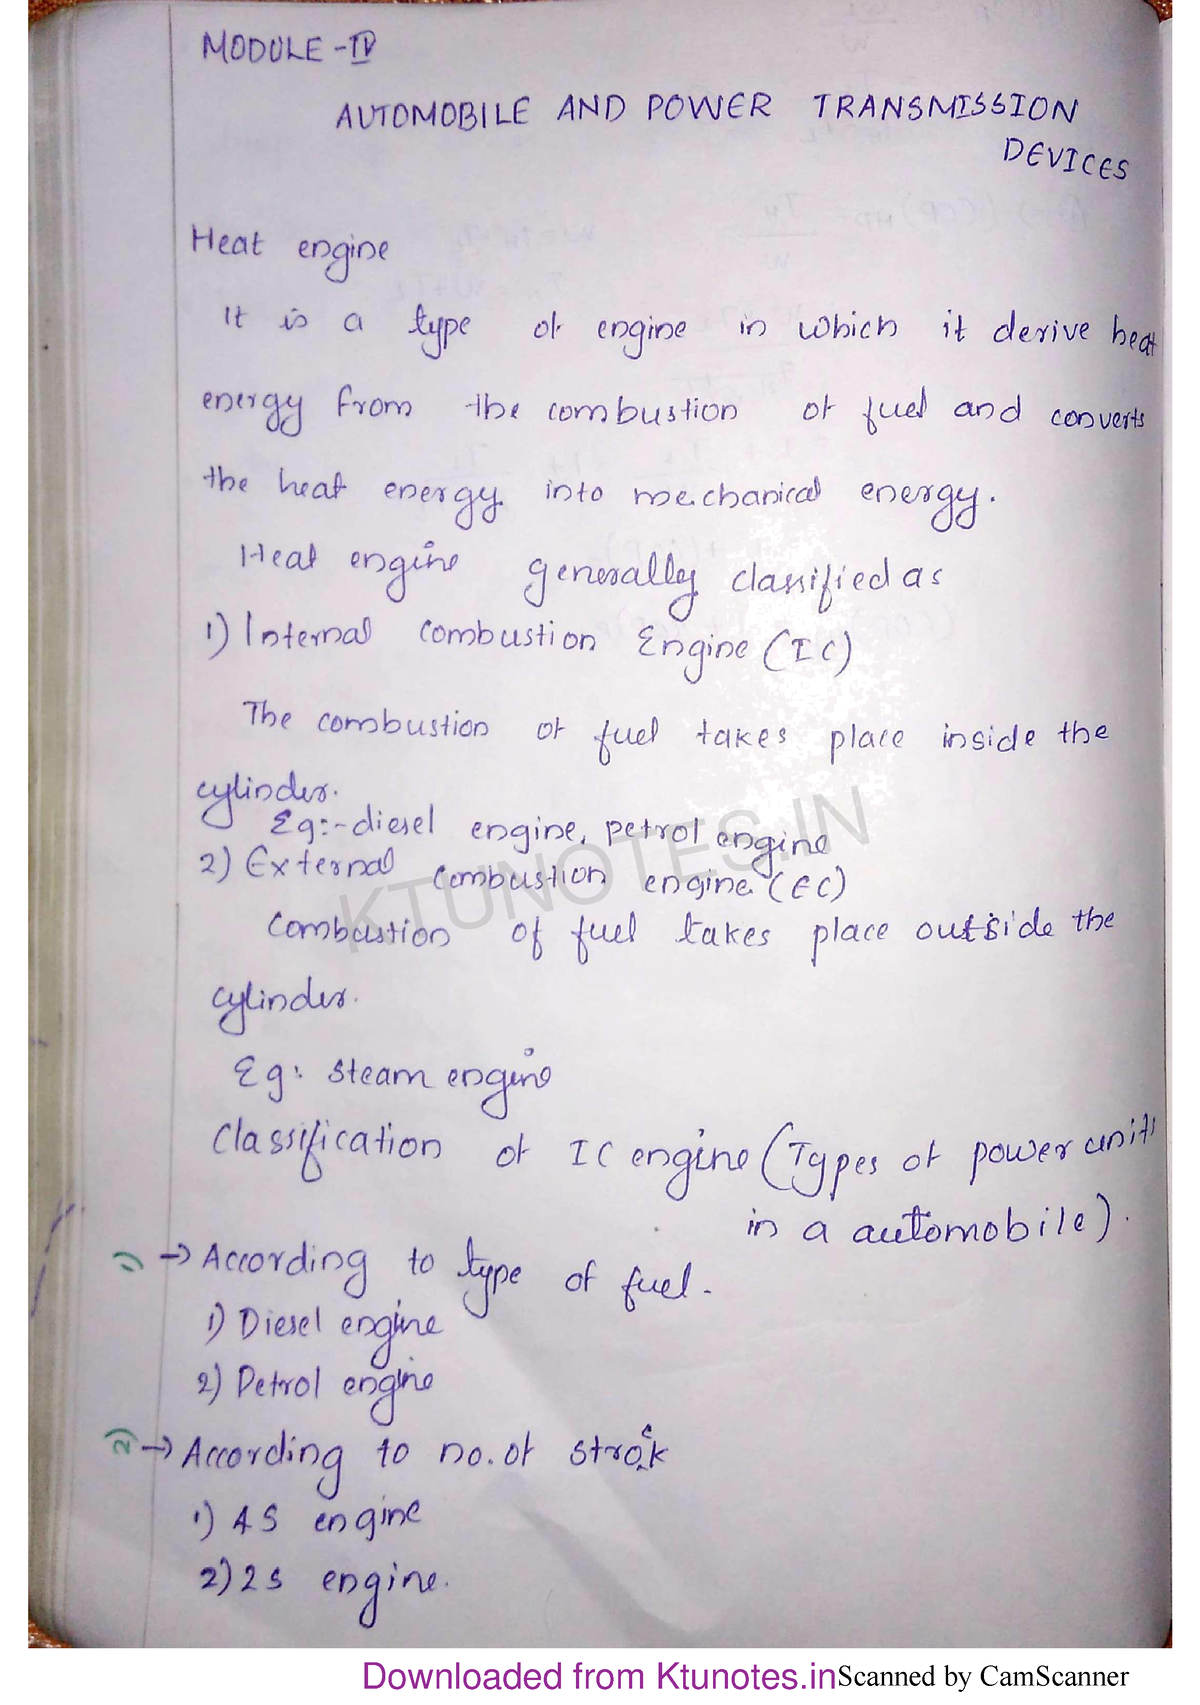 MODULE - IV
AUTOMOBILE AND POWER TRANSMISSION
DEVICES
Heat engine
It is a type of engine in which it derive heat
energy from the combustion of fuel and converts
the heat energy into mechanical energy.
Heat engine generally classified as
1) Internal combustion Engine (IC)
The combustion of fuel takes place inside the
cylinder.
Eg:- diesel engine, petrol engine
2) External combustion engine (EC)
Combustion of fuel takes place outside the
cylinder.
Eg: steam engine
Classification of IC engine (Types of power units
in a automobile).
1) → According to type of fuel.
1) Diesel engine
2) Petrol engine
2) → According to no. of stroke
1) 4S engine
2) 2S engine.
KTUNOTES.IN
Downloaded from Ktunotes.in Scanned by CamScanner